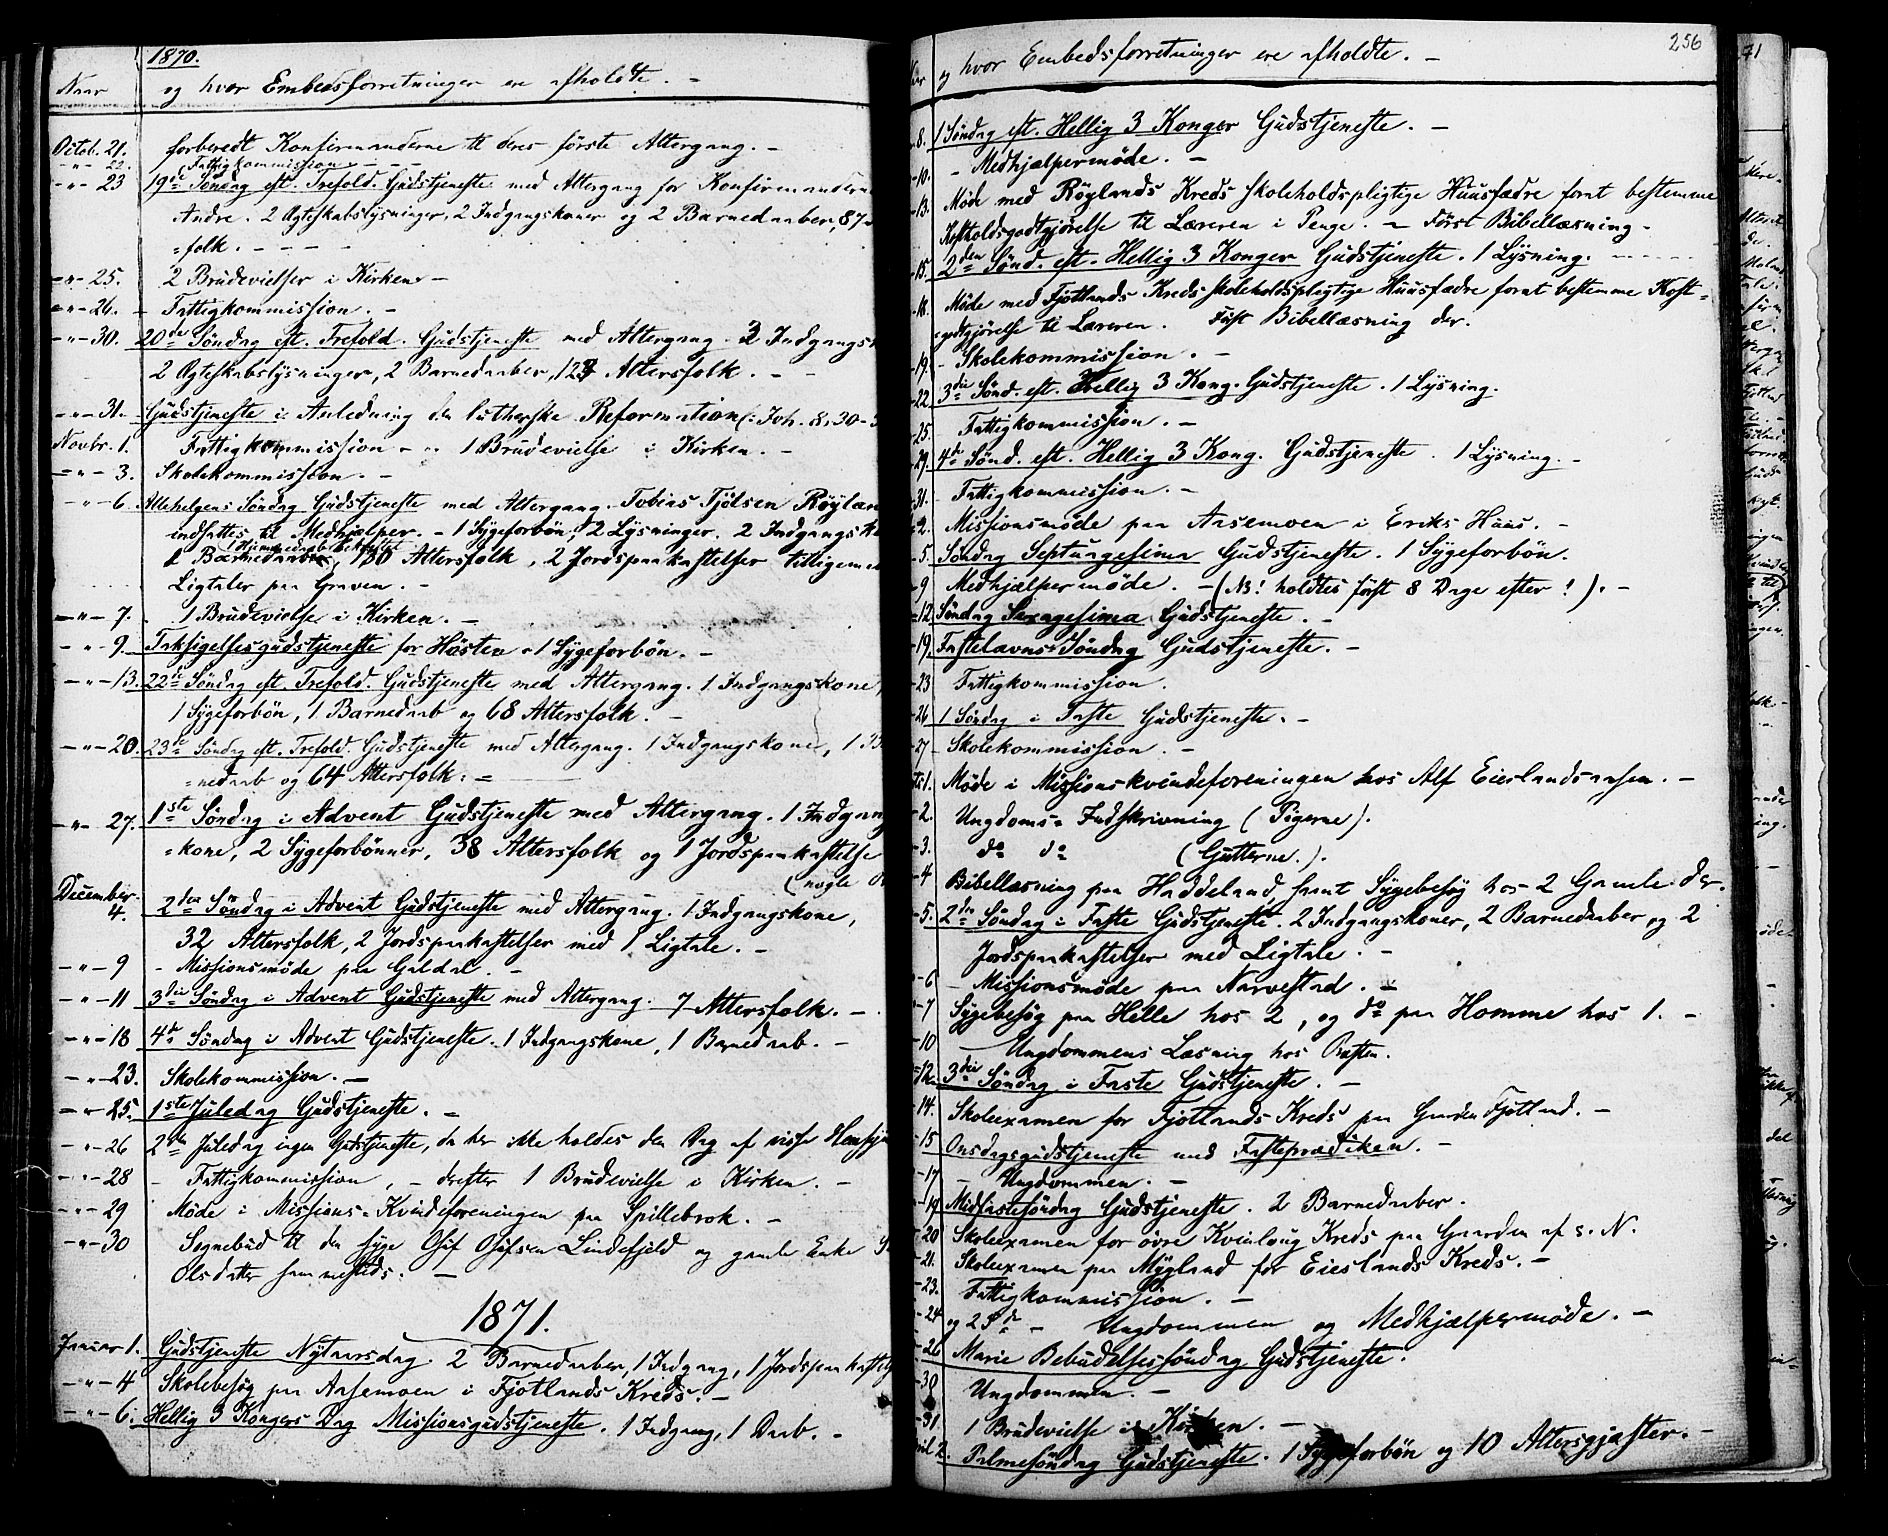 1870.
Naar og hvor Embedsforretninger ere afholdte. -
Octob. 21. forberedt Konfirmanderne til deres förste Altergang. -
- " - 22. Fattigkommission - - - -
- " - 23 19de Söndag eft. Trefold. Gudstjeneste med Altergang for Konfirmanderne
Andre. 2 Ægteskabslysninger, 2 Indgangskoner og 2 Barnedaaber, 87
=folk. - - - -
- " - 25. 2 Brudevielser i Kirken -
- " - 26. - Fattigkommission. -
- " - 30. 20de Söndag eft. Trefold. Gudstjeneste med Altergang. 3 Indgangs
2 Ægteskabslysninger, 2 Barnedaaber, 123 Altersfolk. - -
- " - 31. Gudstjeneste i Anledning den lutherske Reformation (: Joh. 8, 30-
Novbr. 1. Fattigkommission - " 1 Brudevielse i Kirken. -
- " - 3. Skolekommission. -
- " - 6. Allehelgens Söndag Gudstjeneste med Altergang. Tobias Tjölsen Röylan
indsattes til Medhjælper. - 1 Sygeforbön, 2 Lysninger. 2 Indgangsk
2 Barnedaaber, 180 Altersfolk, 2 Jordspaakastelser tilligemed
Ligtaler paa Graven. -
- " - 7. - 1 Brudevielse i Kirken. -
- " - 9. Taksigelsesgudstjeneste for Hösten - 1 Sygeforbön. -
- " - 13. 22de Söndag eft. Trefold. Gudstjeneste med Altergang. 1 Indgangskone,
1 Sygeforbön, 1 Barnedaab og 68 Altersfolk. -
- " - 20. 23de Söndag eft. Trefold. Gudstjeneste med Altergang. 1 Indgangskone, 1 B
=nedaab og 64 Altersfolk. -
- " - 27. 1ste Söndag i Advent Gudstjeneste med Altergang. 1 Indgang
=kone, 2 Sygeforbönner, 38 Altersfolk og 1 Jordspaakastelse
(nogle
December 4. 2den Söndag i Advent Gudstjeneste med Altergang. 1 Indgangskone,
32 Altersfolk, 2 Jordspaakastelser med 1 Ligtale. -
- " - 9 - Missionsmöde paa Galdal. -
- " - 11 3die Söndag i Advent Gudstjeneste med Altergang. 7 Altersfolk. -
- " - 18 4de Söndag i Advent Gudstjeneste. 1 Indgangskone, 1 Barnedaab. -
- " - 23. Skolekommission. -
- " - 25. 1ste Juledag Gudstjeneste. -
- " - 26 2den Juledag ingen Gudstjeneste, da her ikke holdes den Dag af visse Hensyn
- " - 28 - Fattigkommission, - derefter 1 Brudevielse i Kirken. -
- " - 29 Möde i Missions-Kvindeforeningen paa Spillebrok. -
- " - 30 Sognebud til den syge Osif Osifsen Lindefjeld og gamle Enke
Olsdatter sammesteds. -
1871.
Januar 1. Gudstjeneste Nytaarsdag. 2 Barnedaaber, 1 Indgang, 1 Jordspaakastelse
- " - 4 Skolebesög paa Aasemoen i Fjotlands Kreds. -
- " - 6. Hellig 3 Kongers Dag Missionsgudstjeneste. 1 Indgang, 1 Daab. -
256
og hvor Embedsforretninger ere afholdte. -
8. 1 Söndag eft. Hellig 3 Konger Gudstjeneste. -
-10. - Medhjælpermöde. -
-13. Möde med Röylands Kreds skoleholdspligtige Huusfædre fornt bestemme
Kostholdsgodtgjörelse til Læreren i Penge. - Först Bibellæsning -
-15. 2den Sönd. eft. Hellig 3 Konger Gudstjeneste. 1 Lysning. - - - -
-18. Möde med Fjotlands Kreds skoleholdspligtige Huusfædre fornt bestemme Kost=
=godtgjörelse til Læreren. Först Bibellæsning der.
-19. - Skolekommission. -
-22. 3die Sönd. eft. Hellig 3 Kong. Gudstjeneste. 1 Lysning.
-25. Fattigkommission. -
-29. 4de Sönd. eft. Hellig 3 Kong. Gudstjeneste. 1 Lysning. -
-31. - Fattigkommission. -
-2. Missionsmöde paa Aasemoen i Eriks Huus. -
-5. Söndag Septuagesima Gudstjeneste. 1 Sygeforbön.
-9 Medhjælpermöde. - (NB! holdtes först 8 Dage efter!). -
-12 Söndag Sexagesima Gudstjeneste. -
-19. Fastelavns-Söndag Gudstjeneste. -
-23 Fattigkommission.
-26 1 Söndag i Faste Gudstjeneste. -
-27 - Skolekommission. -
1. Möde i Missionskvindeforeningen hos Alf Eieslandsaasen. -
-2. Ungdoms-Indskrivning (Pigerne).
-3. do do (Gutterne.).
-4 Bibellæsning paa Haddeland, samt Sygebesög hos 2 Gamle der.
-5. 2den Söndag i Faste Gudstjeneste. 2 Indgangskoner, 2 Barnedaaber og 2
Jordspaakastelser med Ligtale. -
-6 - Missionsmöde paa Narvestad. -
-7 Sygebesög paa Helle hos 2, og do paa Homme hos 1. -
-10 - Ungdommens Læsning hos Præsten.
-12. 3die Söndag i Faste Gudstjeneste. -
-14. Skoleexamen for Fjotlands Kreds paa Gaarden Fjotland. -
-15 Onsdagsgudstjeneste med Fasteprædiken. -
-17 - Ungdommen. -
-19 Midfastesöndag Gudstjeneste. 2 Barnedaaber.
-20 Skoleexamen for övre Kvinlaug Kreds paa Gaarden af s. N.
-21. Skoleexamen paa Mygland for Eieslands Kreds. -
-23. Fattigkommission. -
-24 og 25de - Ungdommen og Medhjælpermöde. -
-26 Marie Bebudelsessöndag Gudstjeneste.
-30 Ungdommen. -
-31. 1 Brudevielse i Kirken. -
2. Palmesöndag Gudstjeneste. 1 Sygeforbön og 10 Altersgjæster. -
71